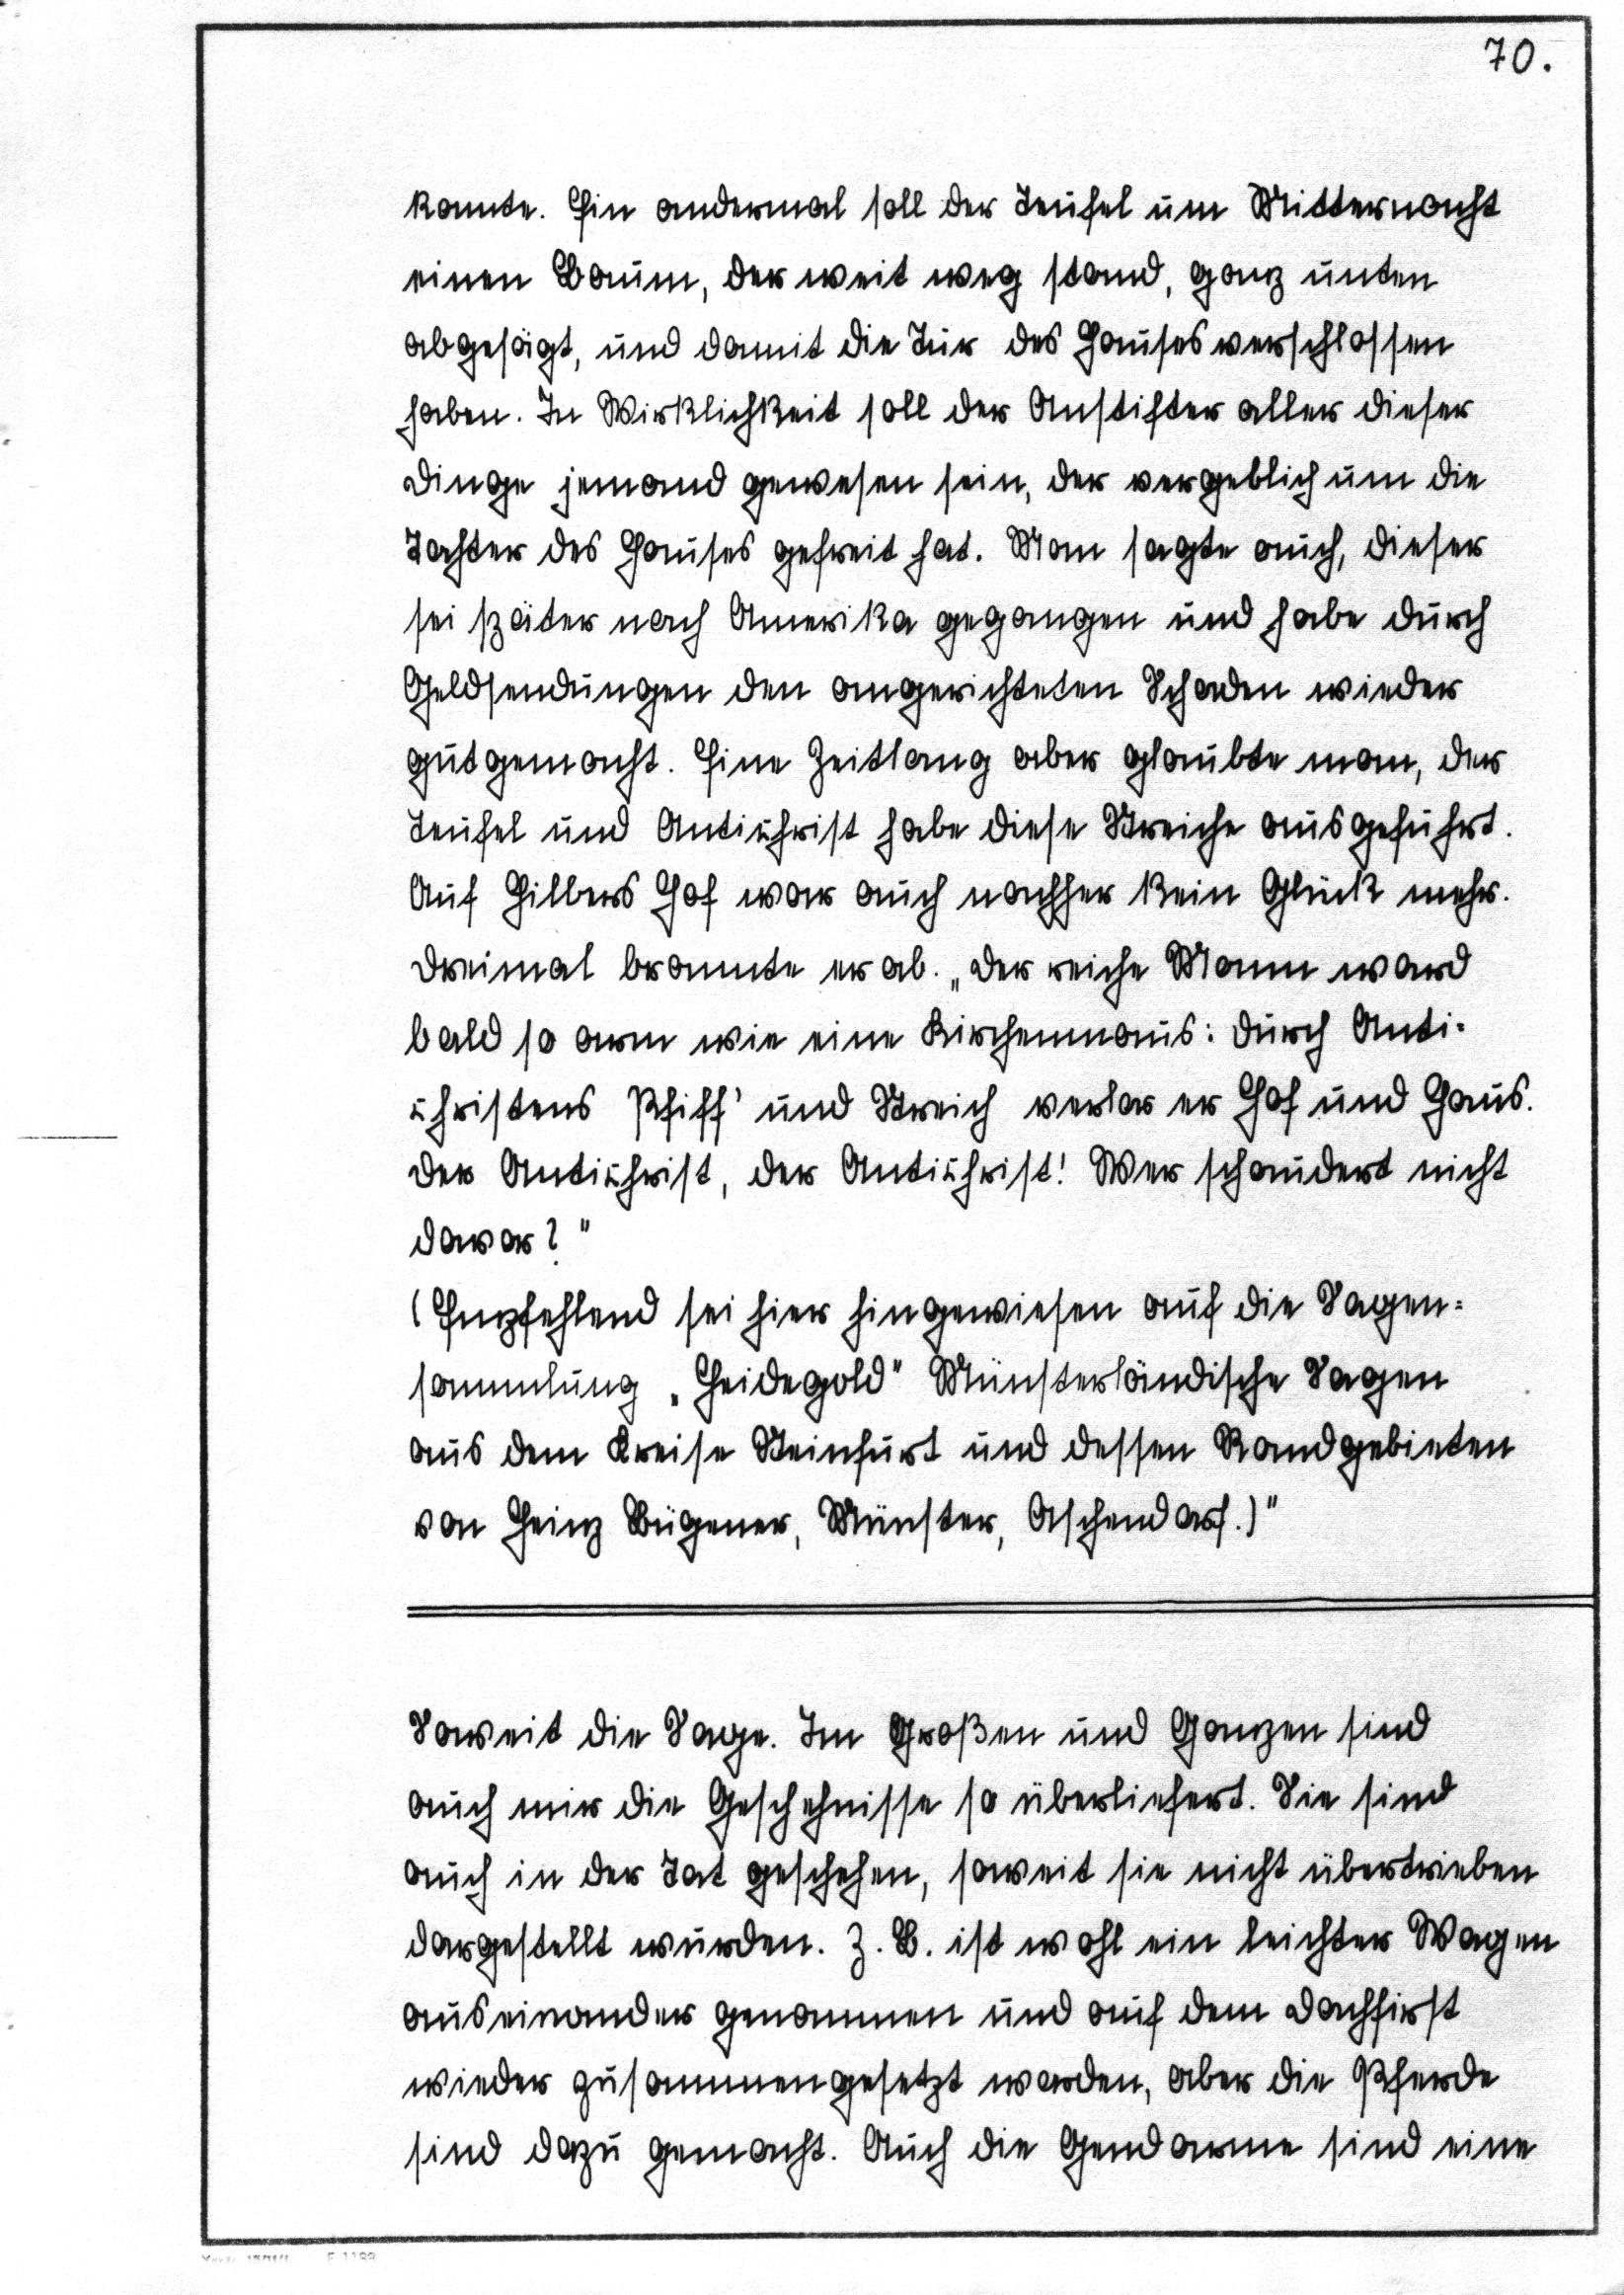 70.
konnte. Ein andermal soll der Teufel um Mitternacht
einen Baum, der weit weg stand, ganz unten
abgesägt, und damit die Tür des Hauses verschlossen
haben. In Wirklichkeit soll der Anstifter aller dieser
Dinge jemand gewesen sein, der vergeblich um die
Tochter des Hauses gefreit hat. Man sagte auch, dieser
sei später nach Amerika gegangen und habe durch
Geldsendungen den angerichteten Schaden wieder
gutgemacht. Eine Zeitlang aber glaubte man, der
Teufel und Antichrist habe diese Streiche ausgeführt.
Auf Hilbers Hof war auch nachher kein Glück mehr.
Dreimal brannte er ab. „Der reiche Mann ward
bald so arm wie eine Kirchenmaus: Durch Anti-
christens Pfiff' und Streich verlor er Hof und Haus.
Der Antichrist, der Antichrist! Wer schaudert nicht
davor?"
(Empfehlend sei hier hingewiesen auf die Sagen=
sammlung „Heidegold" Münsterländische Sagen
aus dem Kreise Steinfurt und dessen Randgebieten
von Heinz Bügener, Münster, Aschendorf.)"
Soweit die Sage. Im Großen und Ganzen sind
auch mir die Geschehnisse so überliefert. Sie sind
auch in der Tat geschehen, soweit sie nicht übertrieben
dargestellt wurden. Z. B. ist wohl ein leichter Wagen
auseinander genommen und auf dem Dachfirst
wieder zusammengesetzt worden, aber die Pferde
sind dazu gemacht. Auch die Gendarme sind eine